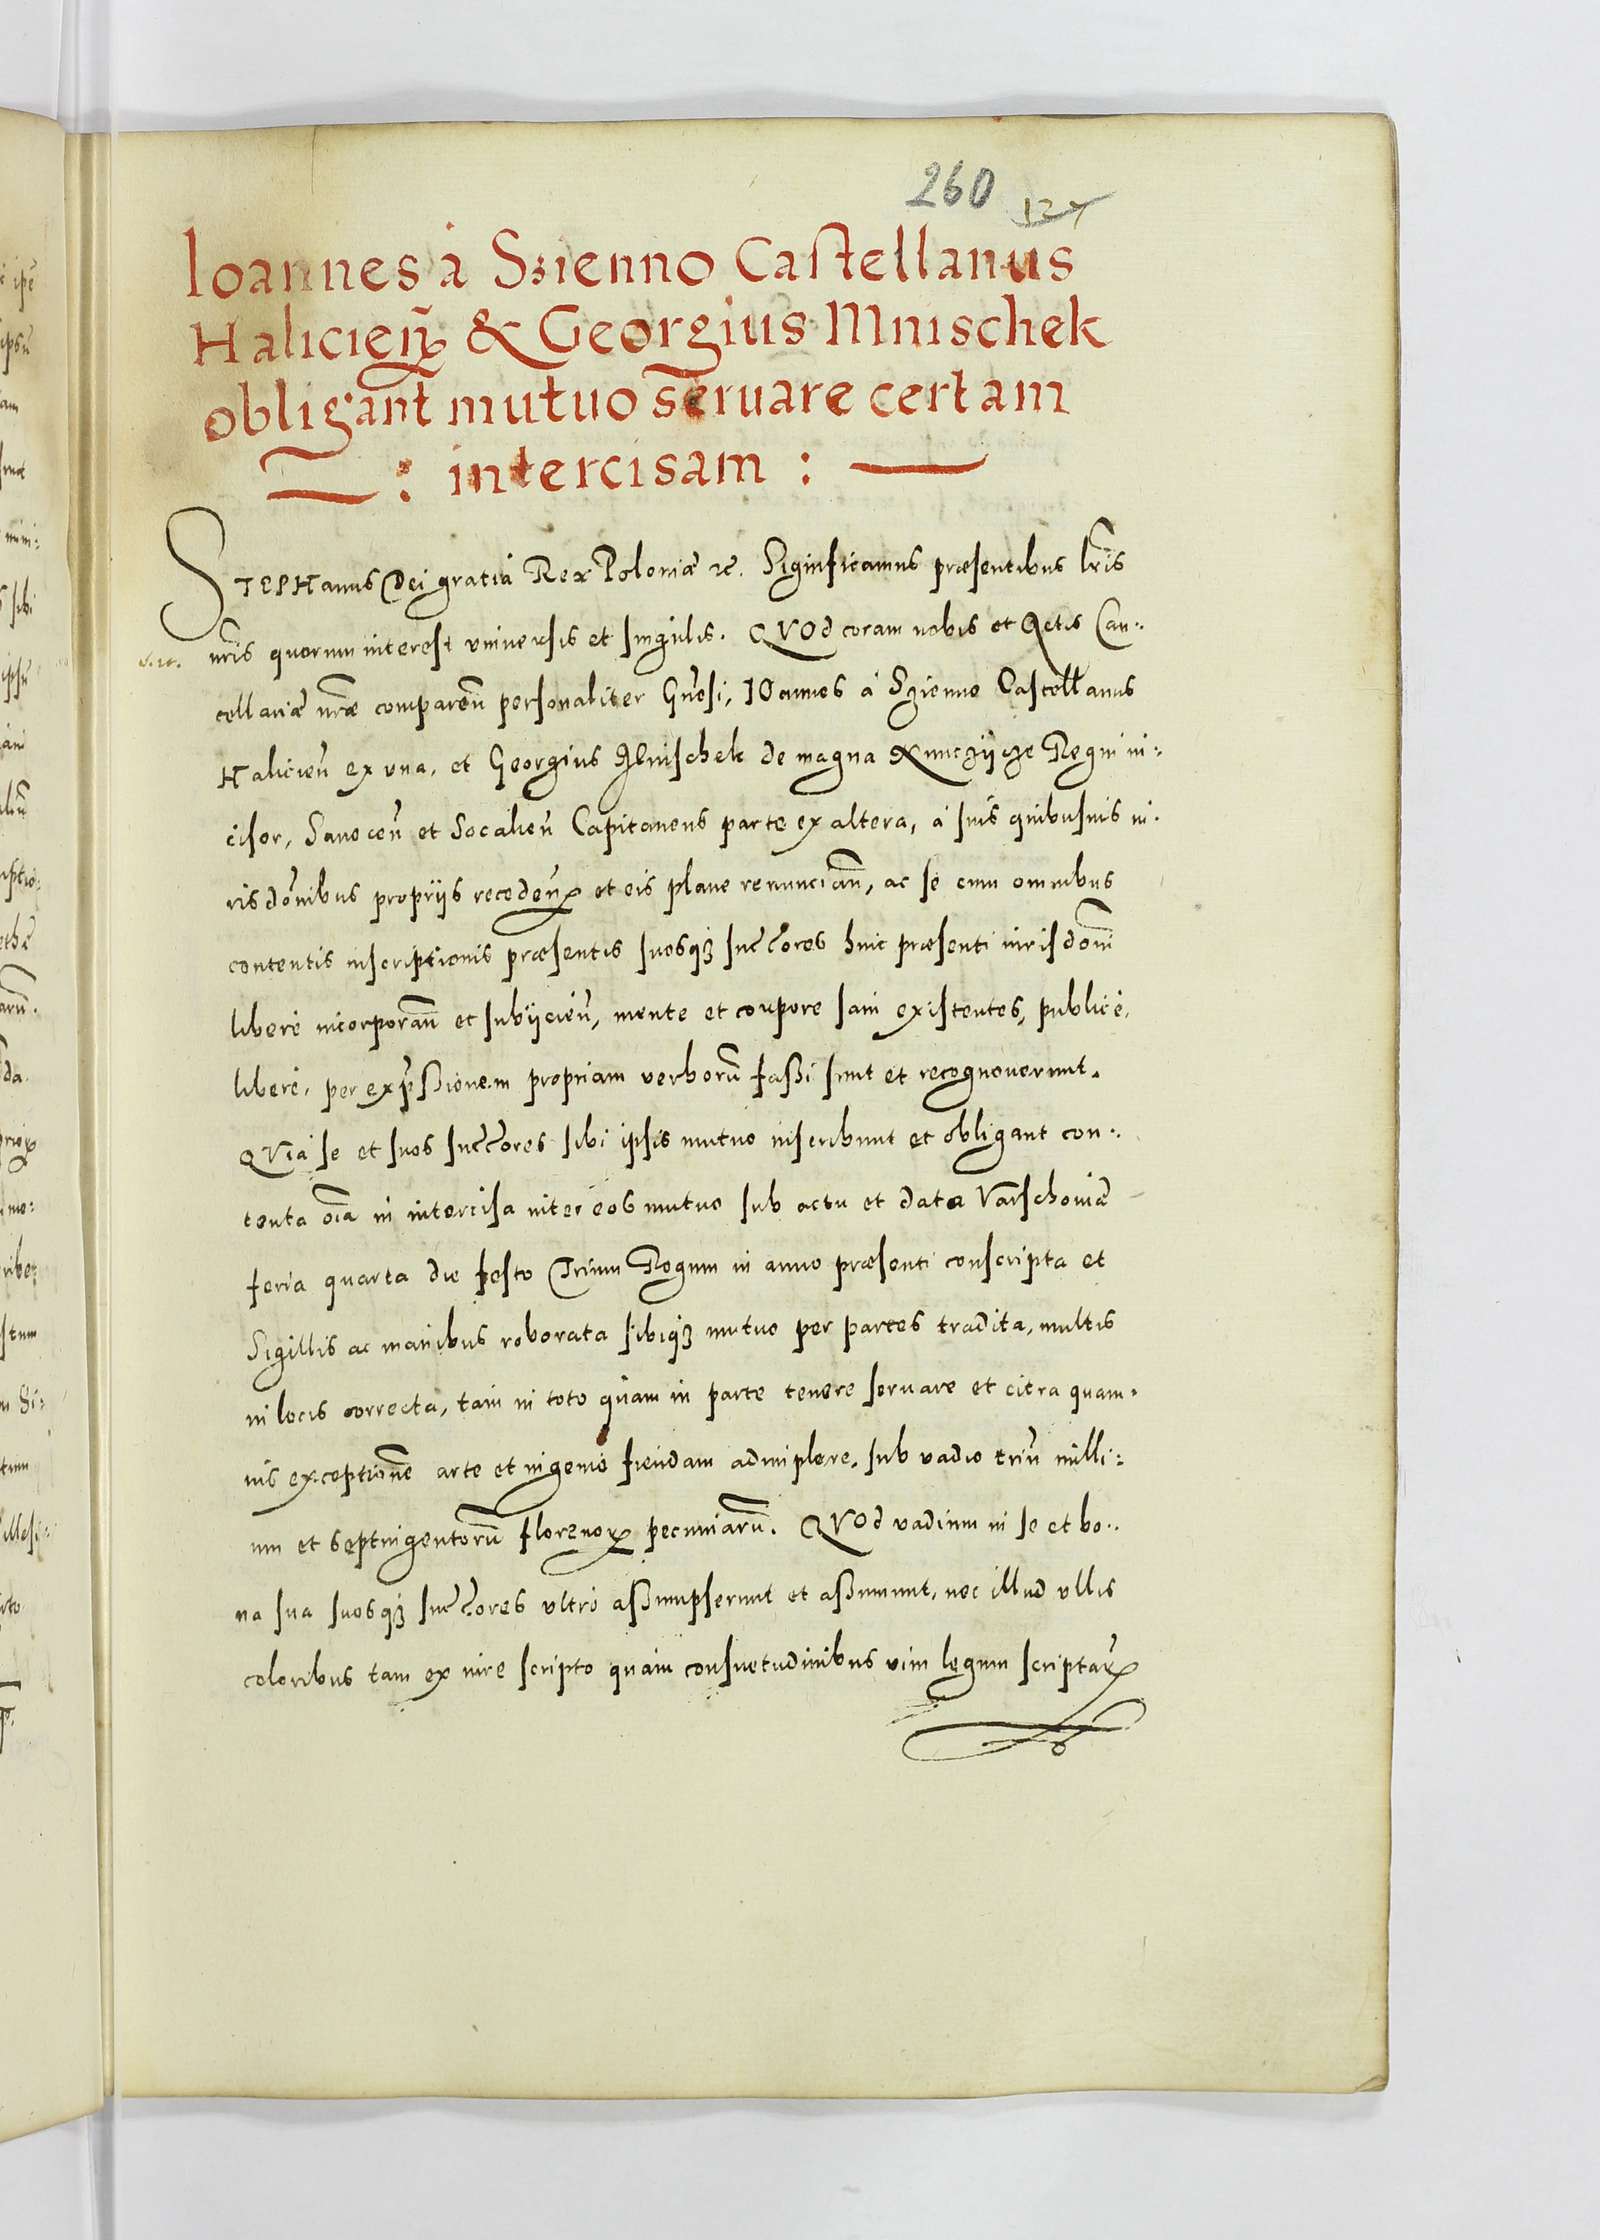 260 127
Ioannes à Szienno Castellanus
Halicien̄ & Georgius Mnischek
obligant mutuo seruare certam
: intercisam :
STEPHanus Dei gratia Rex Poloniæ etc. Significamus præsentibus lr̃is
nr̃is quorum interest vniuersis et singulis. QVOd coram nobis et Actis Can:
cellariæ nr̃æ comparen̄ personaliter Gn̄esi, IOannes à Szienno Castellanus
Halicien̄ ex vna, et Georgius Mnischek de magna Kunczijcze Regni in:
cisor, Sanocen̄ et Socalien̄ Capitaneus parte ex altera, à suis quibusuis iu:
risdõnibus propriis receden̄ et eis plane renuncian̄, ac se cum omnibus
contentis inscriptionis præsentis suosq₃ succ̃ores huic præsenti iurisdõni
liberè incorporan̄ et subijcien̄, mente et corpore sani existentes, publicè,
liberè, per exp̃ßionem propriam verborũ faßi sunt et recognouerunt.
QVia se et suos succ̃ores sibi ipsis mutuo inscribunt et obligant con:
tenta oĩa in intercisa inter eos mutuo sub actu et data Varschouiæ
feria quarta die festo Trium Regum in anno præsenti conscripta et
Sigillis ac manibus roborata sibiq₃ mutuo per partes tradita, multis
in locis correcta, tam in toto quam in parte tenere seruare et citra quam:
uis exceptionẽ arte et ingenio fiendam adimplere, sub vadio triũ milli:
um et septingentorũ florenor̃ pecuniarũ. QVOd vadium in se et bo:
na sua suosq₃ succ̃ores vltrò aßumpserunt et aßumunt, nec illud vllis
coloribus tam ex iure scripto quam consuetudinibus vim legum scriptar̃